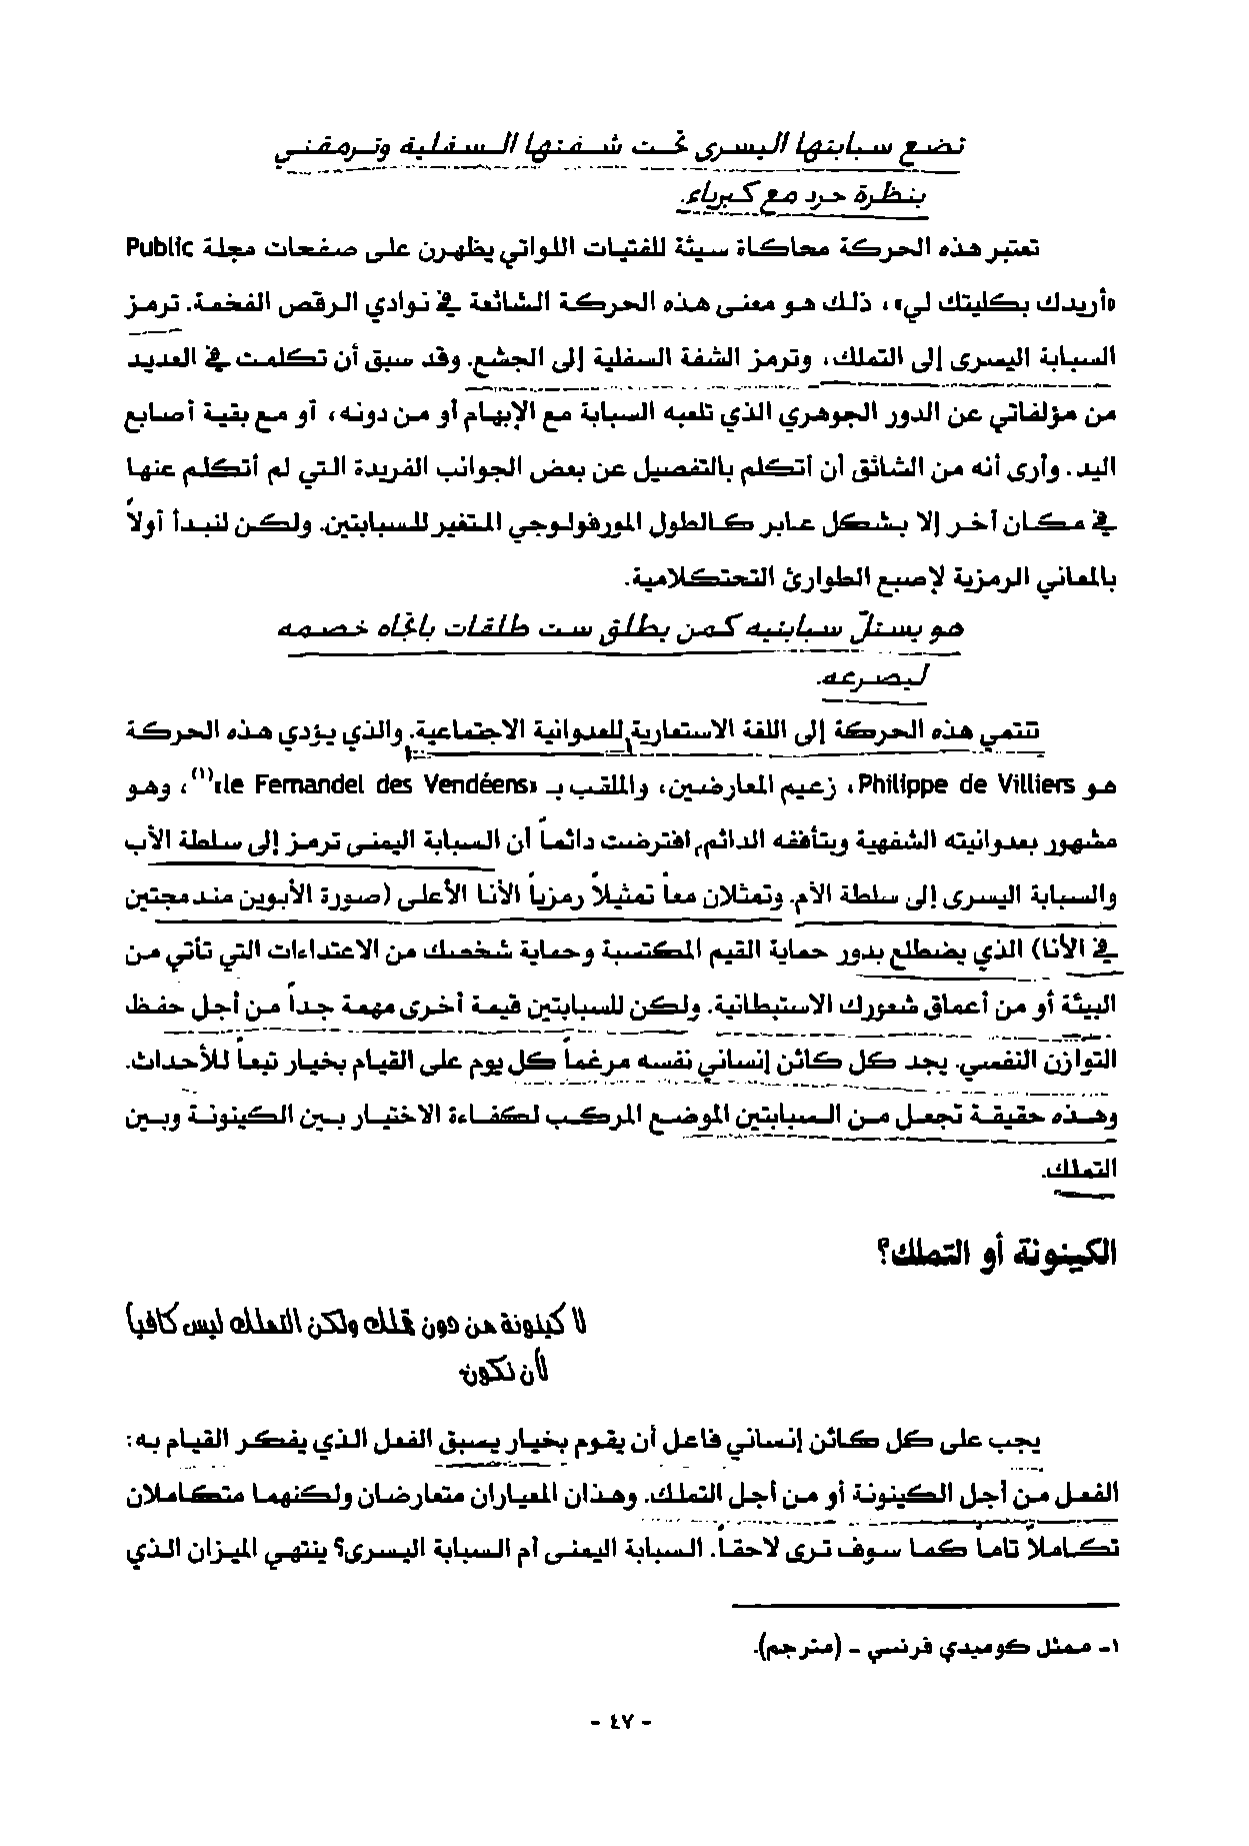 تضع سبابتها اليسرى تحت شفتها السفلية وترمقني
بنظرة حرد مع كبرياء.
تعتبر هذه الحركة محاكاة سيئة للفتيات اللواتي يظهرن على صفحات مجلة Public
«أريدك بكليتك لي»، ذلك هو معنى هذه الحركة الشائعة في نوادي الرقص الفخمة. ترمز
السبابة اليسرى إلى التملك، وترمز الشفة السفلية إلى الجشع. وقد سبق أن تكلمت في العديد
من مؤلفاتي عن الدور الجوهري الذي تلعبه السبابة مع الإبهام أو من دونه، أو مع بقية أصابع
اليد. وأرى أنه من الشائق أن أتكلم بالتفصيل عن بعض الجوانب الفريدة التي لم أتكلم عنها
في مكان آخر إلا بشكل عابر كالطول المورفولوجي المتغير للسبابتين. ولكن لنبدأ أولاً
بالمعاني الرمزية لإصبع الطوارئ التحتكلامية.
هو يستلّ سبابتيه كمن يطلق ست طلقات باتجاه خصمه
ليصرعه.
تنتمي هذه الحركة إلى اللغة الاستعارية للعدوانية الاجتماعية. والذي يؤدي هذه الحركة
هو Philippe de Villiers، زعيم المعارضين، والملقب بـ «le Fernandel des Vendéens»(١)، وهو
مشهور بعدوانيته الشفهية وبتأففه الدائم، افترضت دائماً أن السبابة اليمنى ترمز إلى سلطة الأب
والسبابة اليسرى إلى سلطة الأم. وتمثلان معاً تمثيلاً رمزياً الأنا الأعلى (صورة الأبوين مندمجتين
في الأنا) الذي يضطلع بدور حماية القيم المكتسبة وحماية شخصك من الاعتداءات التي تأتي من
البيئة أو من أعماق شعورك الاستبطانية. ولكن للسبابتين قيمة أخرى مهمة جداً من أجل حفظ
التوازن النفسي. يجد كل كائن إنساني نفسه مرغماً كل يوم على القيام بخيار تبعاً للأحداث.
وهذه حقيقة تجعل من السبابتين الموضع المركب لكفاءة الاختيار بين الكينونة وبين
التملك.
الكينونة أو التملك؟
لا كينونة من دون تملك ولكن التملك ليس كافياً
لأن نكون.
يجب على كل كائن إنساني فاعل أن يقوم بخيار يسبق الفعل الذي يفكر القيام به:
الفعل من أجل الكينونة أو من أجل التملك. وهذان المعياران متعارضان ولكنهما متكاملان
تكاملاً تاماً كما سوف ترى لاحقاً. السبابة اليمنى أم السبابة اليسرى؟ ينتهي الميزان الذي
١- ممثل كوميدي فرنسي - (مترجم).
- ٤٧ -